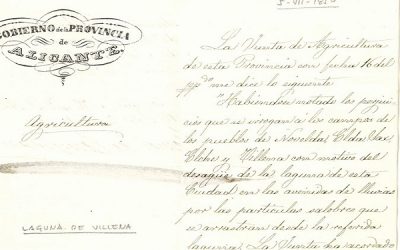 5-VII-1850
GOBIERNO de la PROVINCIA
de
ALICANTE.
Agricultura
LAGUNA DE VILLENA
La Junta de Agricultura
de esta Provincia con fecha 16 del
me dice lo siguiente
"Habiendose notado los perjui
cios que se irrogan a los campos de
los pueblos de Novelda, Elda, Sax,
Elche y Villena con motivo del
desagüe de la laguna de esta
Ciudad en las avenidas de lluvias
por las particulas salobres que
se arrastran desde la referida
laguna; La Junta ha acordado